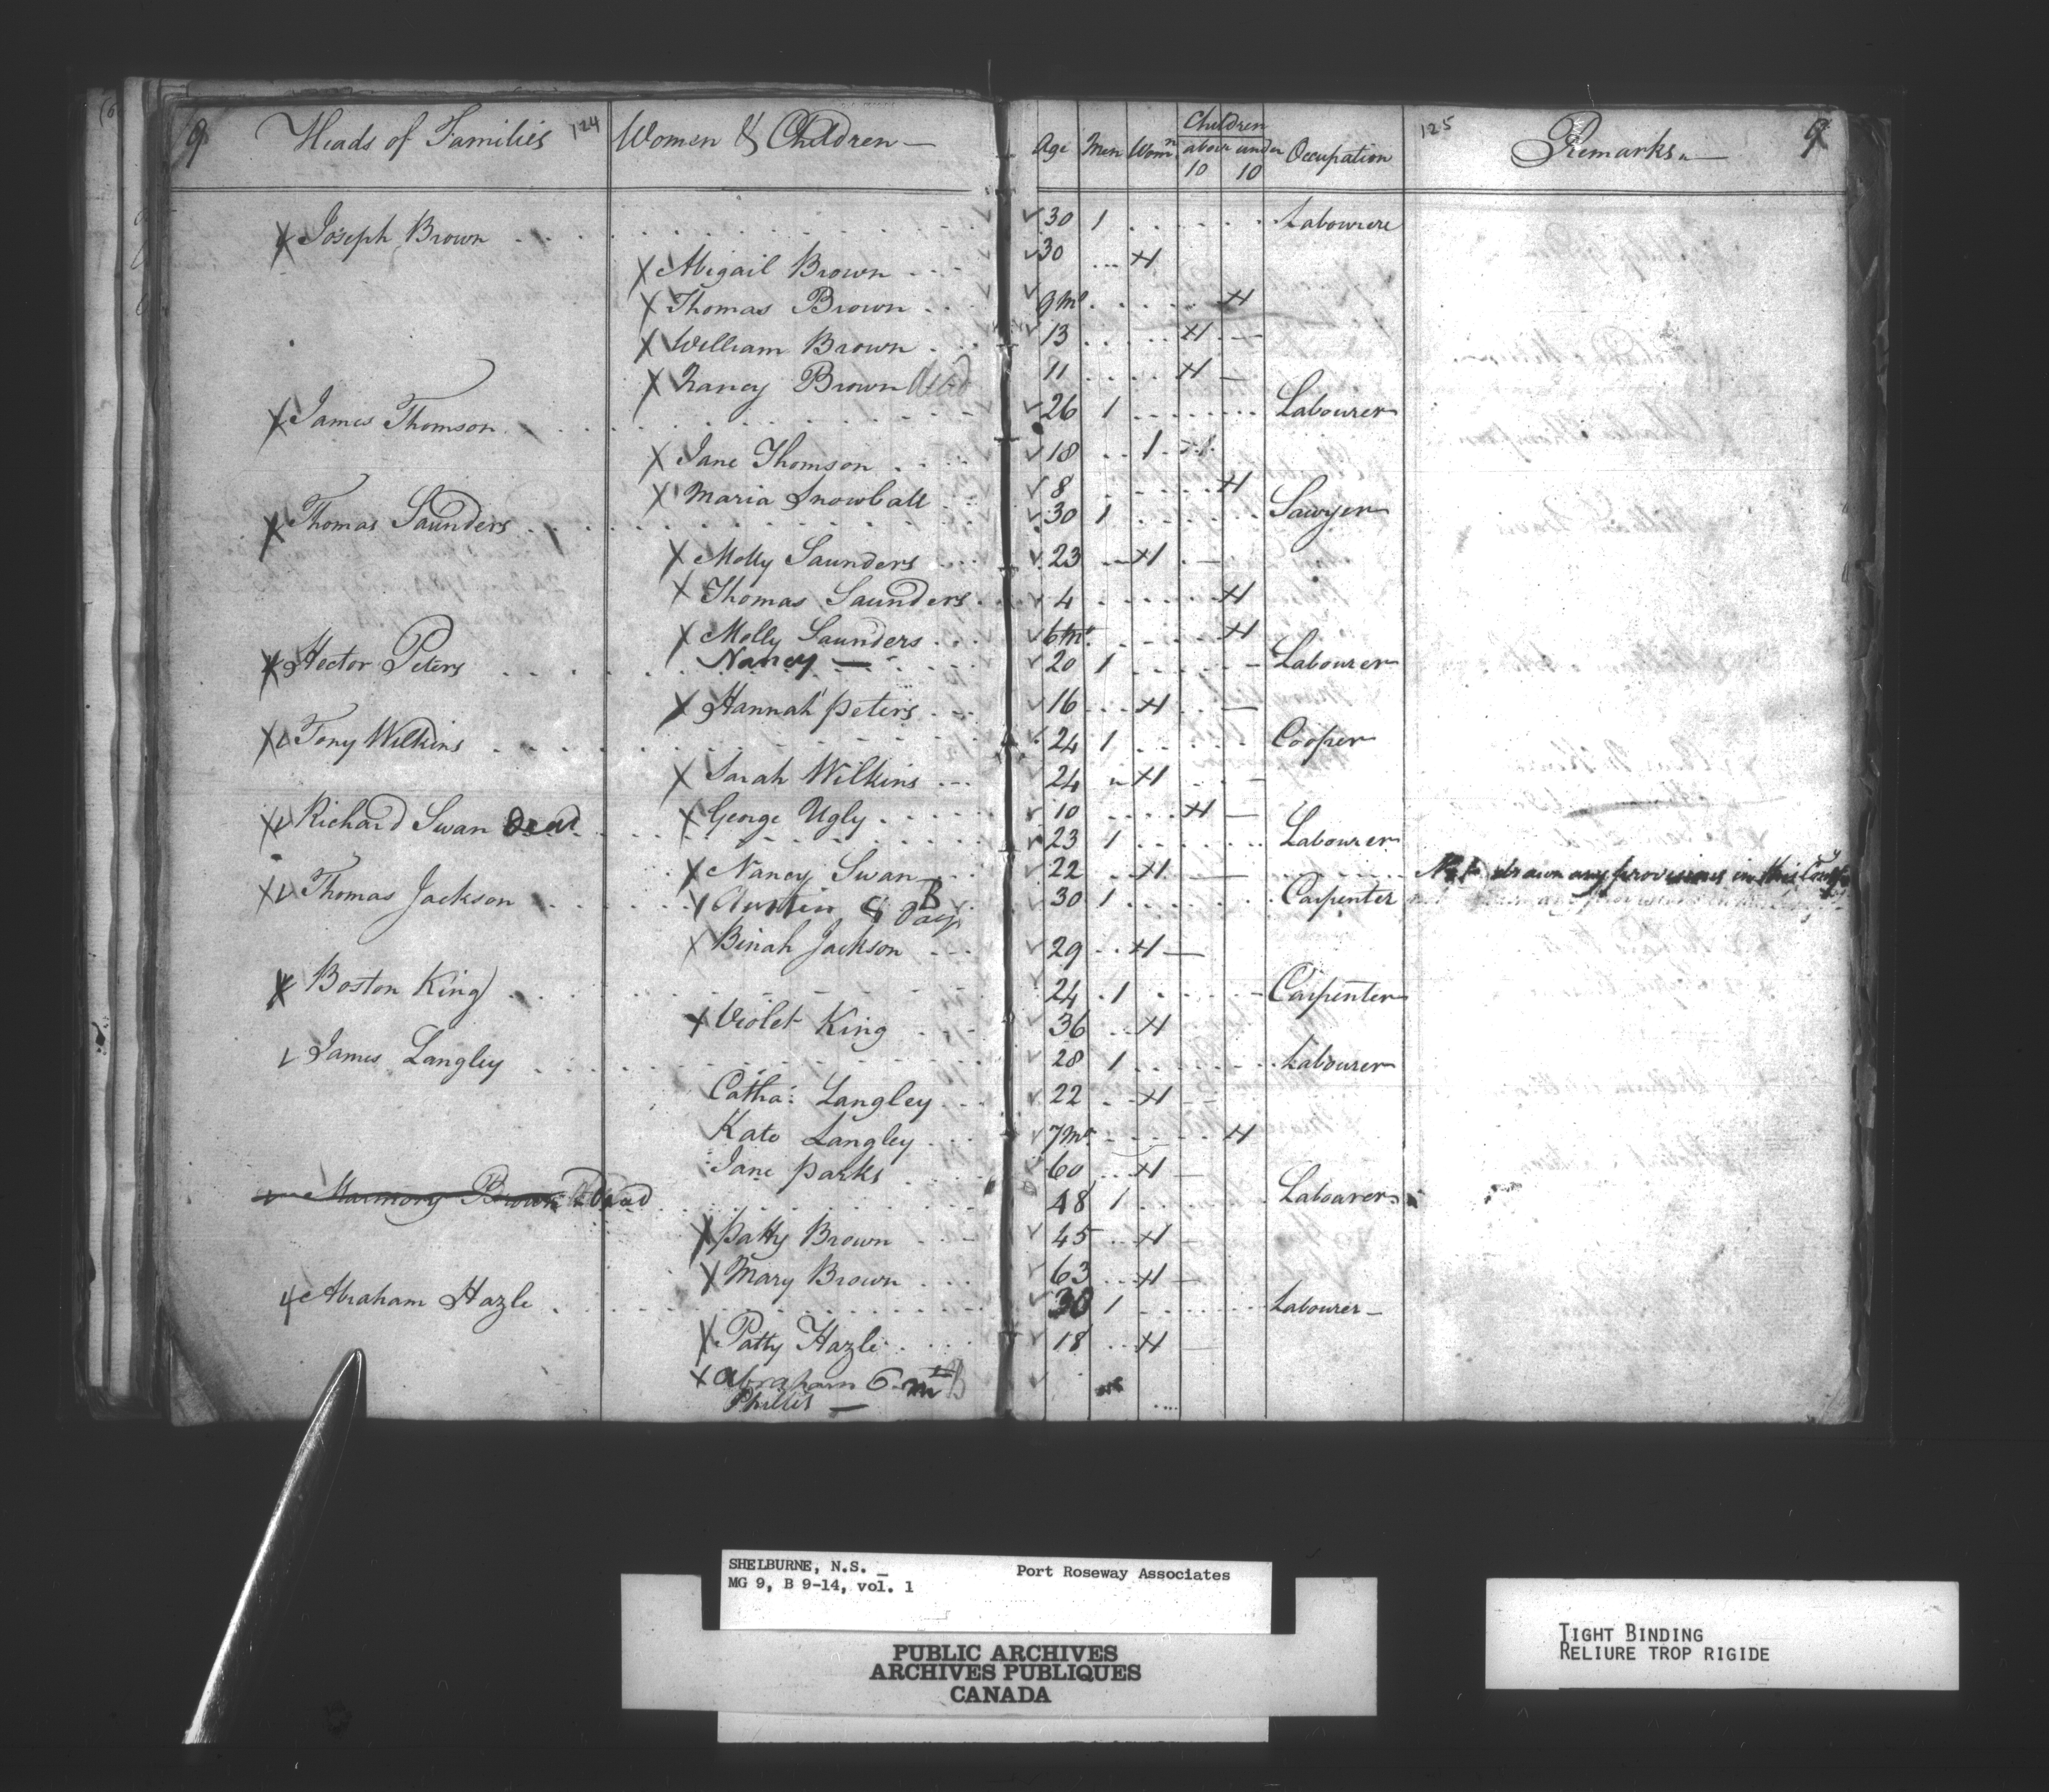 9 Heads of Families 124 Women & Children Age Men Wom.n Children above 10 under 10 Occupation 125 Remarks 9
Joseph Brown 30 1 Labourer
Abigail Brown 30 1
Thomas Brown 9 Ms 1
William Brown 13 1
Nancy Brown Dead 11 1
James Thomson 26 1 Labourer
Jane Thomson 18 1
Maria Snowball 8 1
Thomas Saunders 30 1 Sawyer
Molly Saunders 23 1
Thomas Saunders 4 1
Molly Saunders 6 Ms 1
Nancy —
Hector Peters 20 1 Labourer
Hannah Peters 16 1
Tony Wilkins 24 1 Cooper
Sarah Wilkins 24 1
George Ugly 10 1
Richard Swan Dead 23 1 Labourer
Nancy Swan 22 1 Not drawn any provisions in this
Thomas Jackson 30 1 Carpenter
B
Binah Jackson 29 1
Boston King 24 1 Carpenter
Violet King 36 1
James Langley 28 1 Labourer
Catha: Langley 22 1
Kate Langley 7 Ms 1
Jane Parks 60 1
Marmory Brown Dead 48 1 Labourer
Patty Brown 45 1
Mary Brown 63 1
Abraham Hazle 30 1 Labourer
Patty Hazle 18 1
Abraham 6 m B
Phillis —
SHELBURNE, N.S. Port Roseway Associates
MG 9, B 9-14, vol. 1
PUBLIC ARCHIVES
ARCHIVES PUBLIQUES
CANADA
TIGHT BINDING
RELIURE TROP RIGIDE